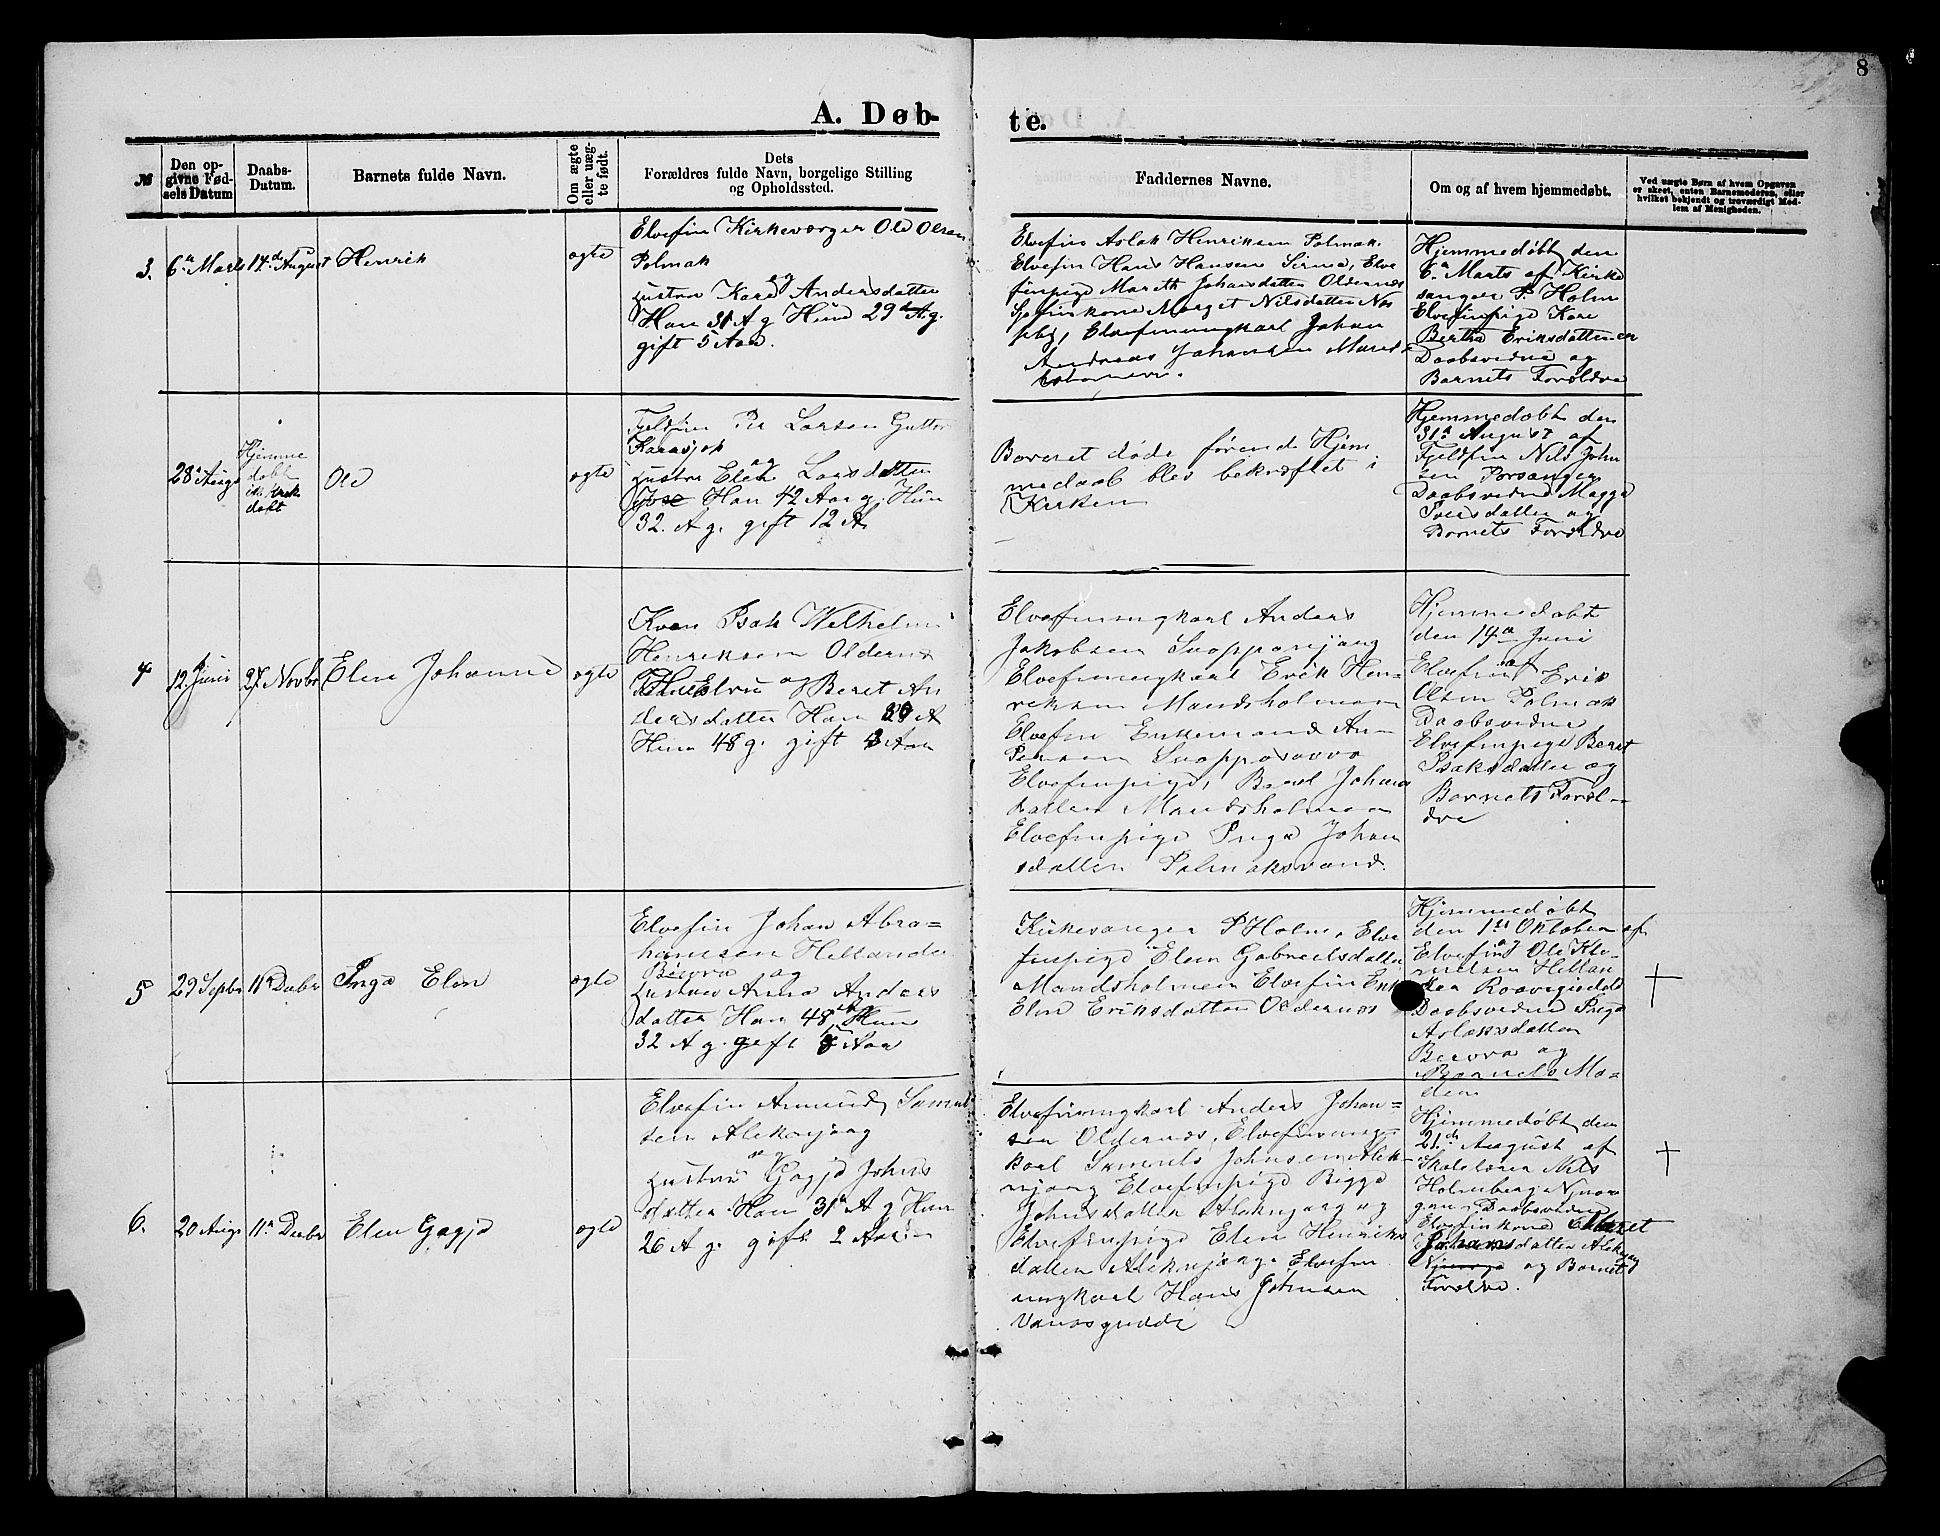 8
A. Døb-
te.
№
Den op-
givne Fød-
sels Datum
Daabs-
Datum.
Barnets fulde Navn.
Om ægte
eller uæg-
te født.
Dets
Forældres fulde Navn, borgelige Stilling
og Opholdssted.
Faddernes Navne.
Om og af hvem hjemmedøbt.
Ved uægte Børn af hvem Opgaven
er skeet, enten Barnemoderen, eller
hvilket bekjendt og troværdigt Med-
lem af Menigheden.
3.
6te Marts
14de August
Henrik
ægte
Elvefin Kirkeværger Ole Olsen
Polmak
og
Hustru Kare Andersdatter
Han 31 A g Hun 29 A g.
gift 5 Aar.
Elvefin Aslak Henriksen Polmak.
Elvefin Hans Hansen Sirma, Elve
finpige Mareth Johansdatter Oldernæs
Sjøfinkone Marget Nilsdatter Næs
Elvefinungkarl Johan
Andreas Johansen
Hjemmedøbt den
6te Marts af Kirke
sanger P Holm
Elvefinpige Kare
Bertha Eriksdatter er
Daabsvidne og
Barnets Forældre
28de Augs
Hjemme
døbt
ikke
døbt
Ole
ægte
Fjeldfin Per Larsen Guttorm
Karasjok
og
Hustru Elen Larsdatter
Han 42 Aar g. Hun
32. A g. gift 12 A
Barnet døde førend Hjem
medaab blev bekræftet i
Kirken
Hjemmedøbt den
31te August af
Fjeldfin Nils John
sen Porsanger
Daabsvidne Magga
Iversdatter og
Barnets Forældre
4
12te Juni
27. Novbr
Elen Johanne
ægte
Kvæn Isak Wilhelm
Henriksen Oldernæs
og
Hustru Beret An
dersdatter Han 39 A
Hun 48 g. gift 3 Aar
Elvefinungkarl Anders
Jakobsen Suoppanjarg
Elvefinungkarl Erik Hen-
riksen Mandsholmen
Elvefin Enkemand An-
Persen Suoppasavvo
Elvefinpige, Beret Johans
datter Mandsholmen
Elvefinpige Inga Johan
sdatter Polmaksvand.
Hjemmedøbt
den 14de Juni
af
Elvefin Erik
Olsen Polmak
Daabsvidne
Elvefinpige Beret
Isaksdatter og
Barnets Foræl-
dre
5
29 Septbr
11te Decbr
Inga Elen
ægte
Elvefin Johan Abra-
hamsen Hellander
og
Hustru Anna Anders
datter Han 48 Hun
32 A g. gift 8 Aar
Kirkesanger P Holm, Elve
finpige Elen Gabrielsdatter
Mandsholmen Elvefin Enke
Elen Eriksdatter Oldernæs
Hjemmedøbt
den 1ste Oktober af
Elvefin Ole Kle-
metsen Hellan
der Roavvegiedde
Daabsvidne Inga
Aslaksdatter
og
Barnets Mo-
der
6.
20 Augs
11te Decbr
Elen Gagja
ægte
Elvefin Amund Samuel
sen Aleknjarg
og
Hustru Gagja Johns
datter Han 31 A g Hun
26 A g. gift 2 Aar
Elvefinungkarl Anders Johan-
sen Oldernæs, Elvefinung-
karl Samuel Johnsen Alek-
njarg Elvefinpige Bigga
Johnsdatter Aleknjarg og
Elvefinpige Elen Henriks
datter Aleknjarg Elvefin
ungkarl Hans Johnsen
Hjemmedøbt den
21de August af
Skolelærer Nils
Holmberg
Daabsvidne
Elvefinkone Maret
Johansdatter Aleknjarg
og Barnets
Forældre.